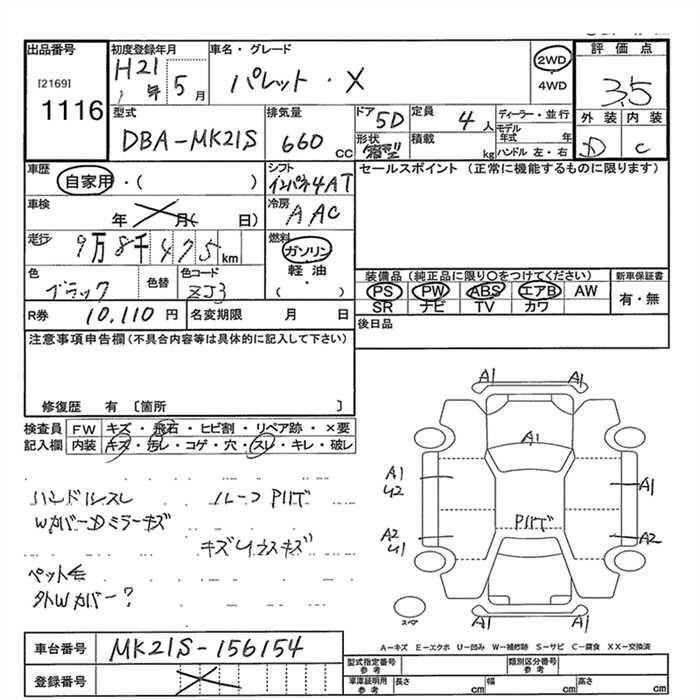 出品番号 初度登録年月 車名・グレード 2WD 評価点
[2169] H21年 5月 パレット・X ・4WD 3.5
1116
型式 排気量 ドア 5D 定員 4人 ディーラー・並行 外装 内装
DBA-MK21S 660cc 形状 箱型 積載 kg モデル年式 年 D C
ハンドル 左・右
車歴 自家用・( ) シフト インパネ4AT セールスポイント (正常に機能するものに限ります)
車検 年 月( 日) 冷房 AAC
走行 9万8千475km 燃料 ガソリン
軽油
( )
色 ブラック 色替 色コード ZJ3
装備品 (純正品に限り○をつけてください) 新車保証書
PS PW ABS エアB AW 有・無
SR ナビ TV カワ
R券 10,110円 名変期限 月 日 後日品
注意事項申告欄(不具合内容等は具体的に記入して下さい)
修復歴 有 〔箇所 〕
検査員 FW キズ・飛石・ヒビ割・リペア跡・×要
記入欄 内装 キズ・汚レ・コゲ・穴・スレ・キレ・破レ
ハンドルスレ ルーフPハゲ
WカバーDミラーキズ
キズUウスキズ
ペット毛
外Wカバー?
A1 A1
A1
A1
U2 A1
Pハゲ
A2
U1 A2
スペア
A1 A1
A-キズ E-エクボ U-凹み W-補修跡 S-サビ C-腐食 XX-交換済
車台番号 MK21S-156154
登録番号
型式指定番号 参考 類別区分番号 参考
車庫証明用 参考 長さ cm 幅 cm 高さ cm